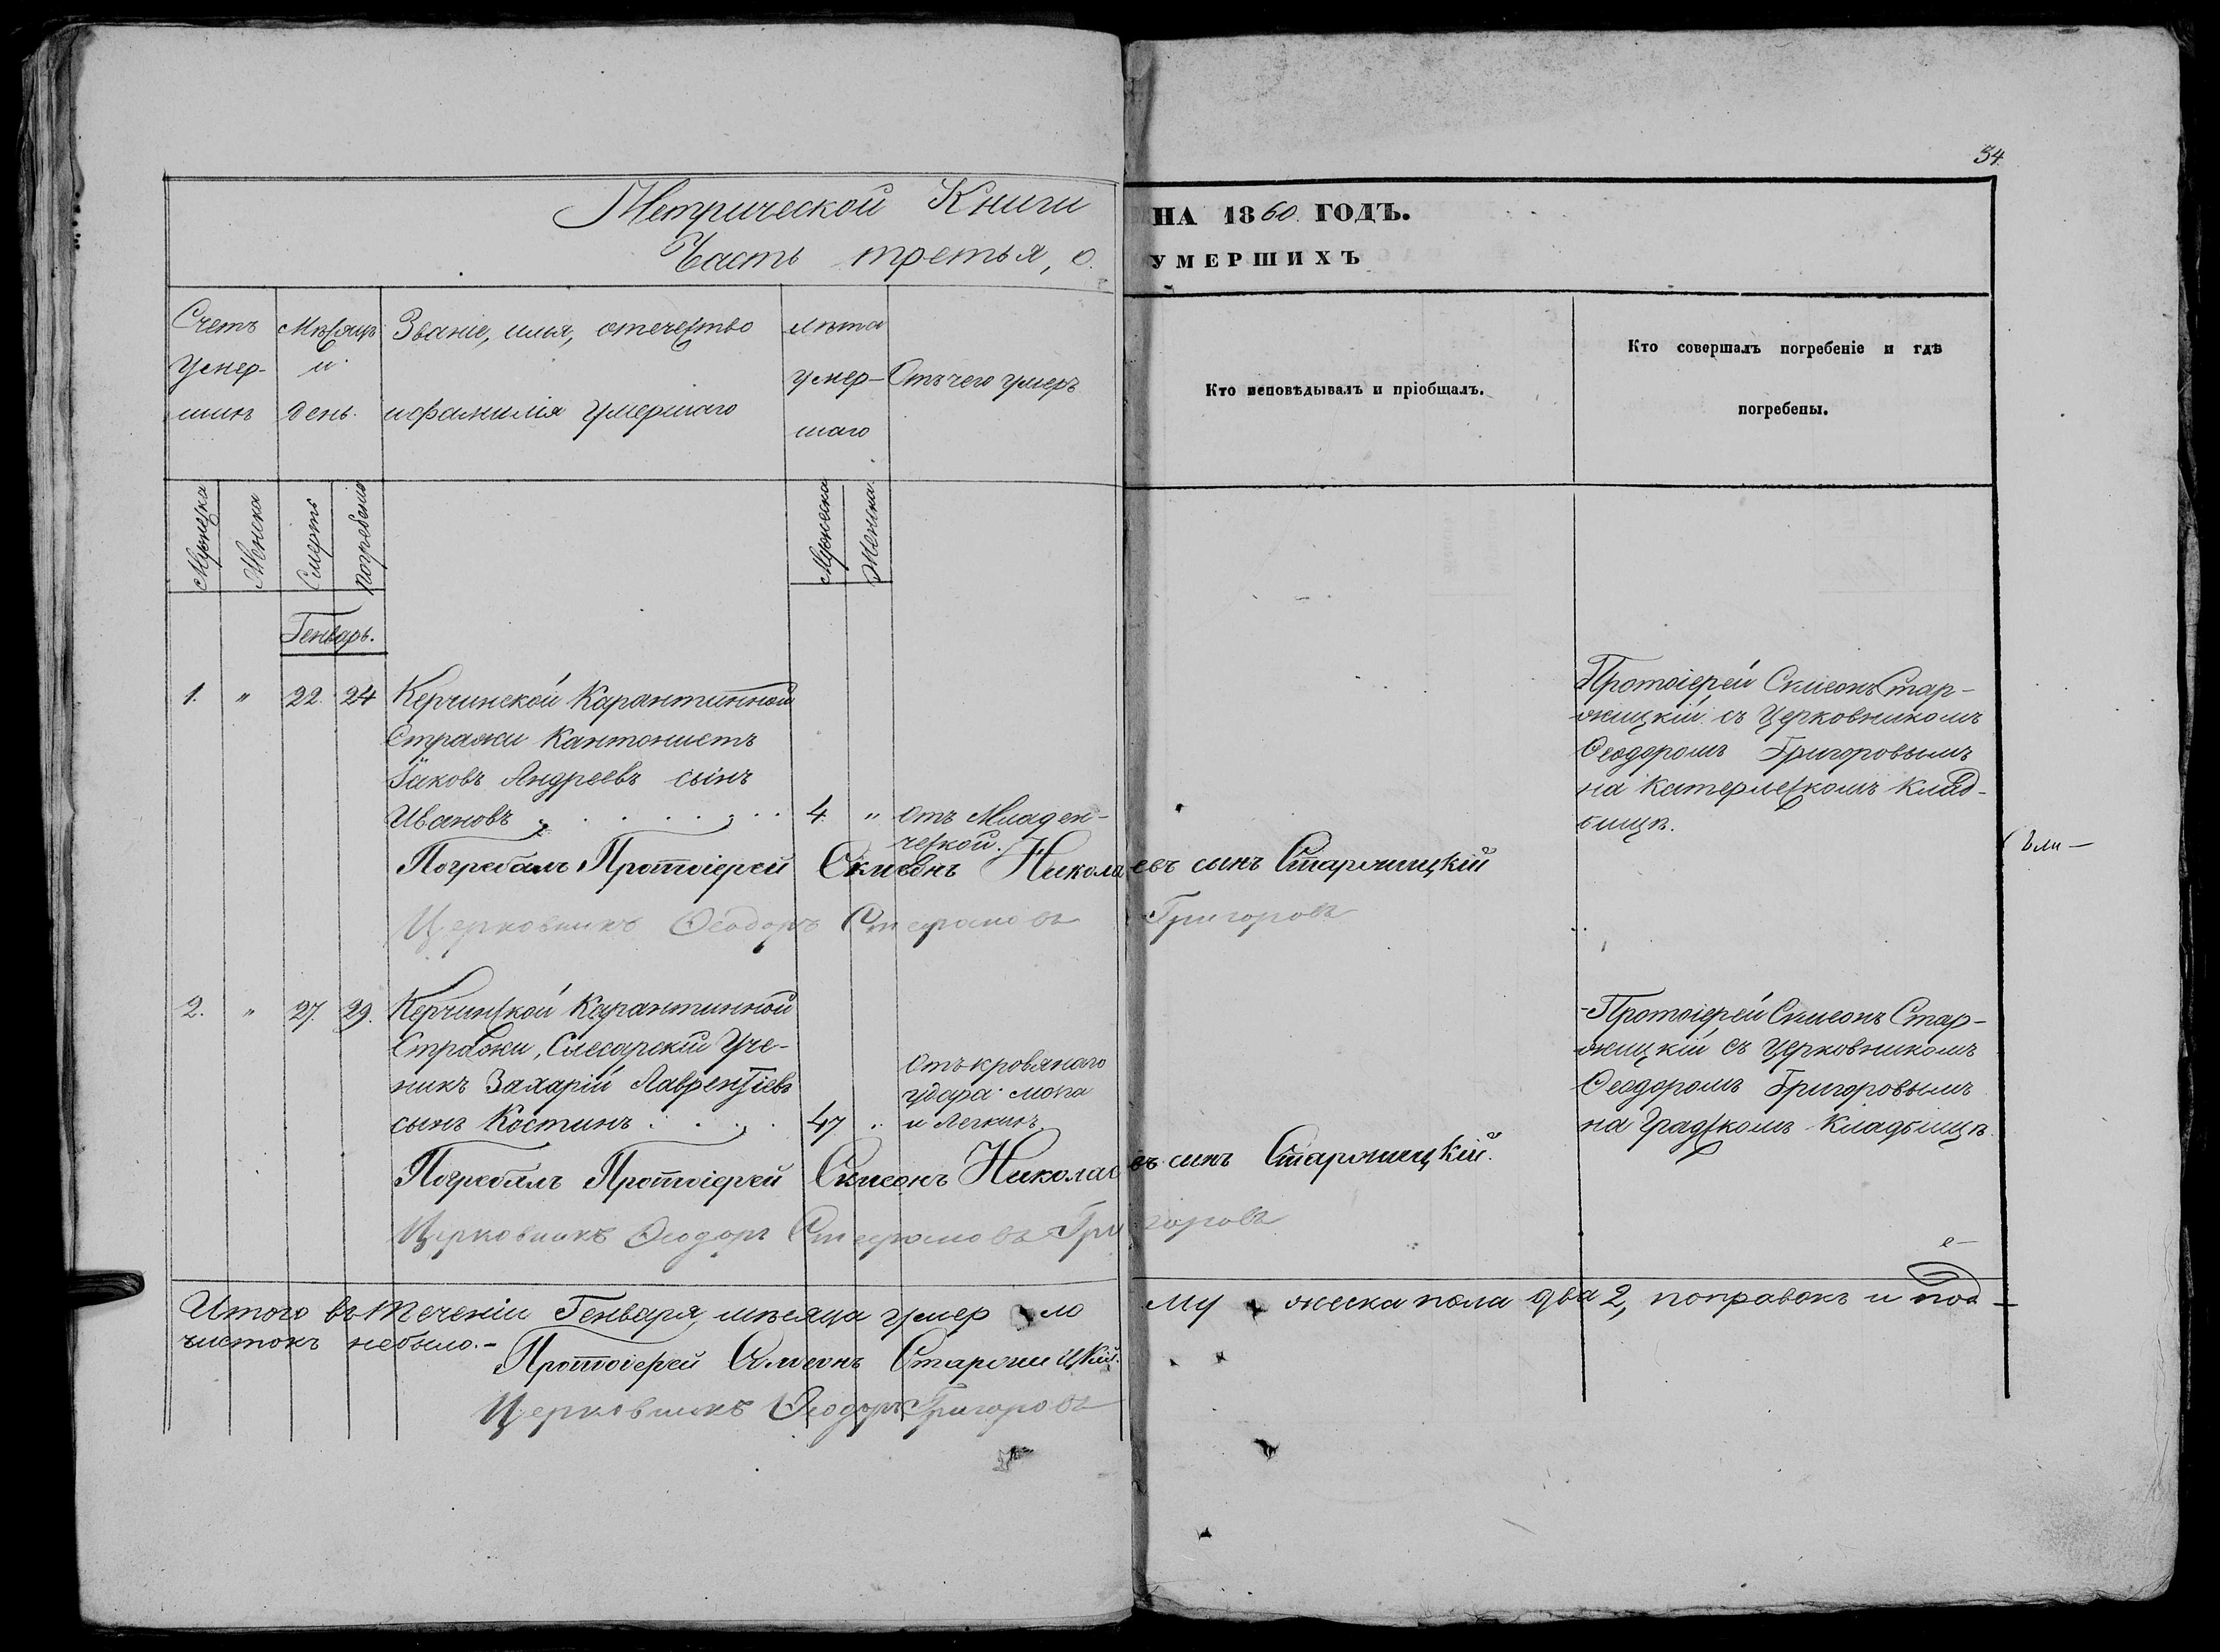 34
Метрической Книги НА 1860. ГОДЪ.
Часть третья, о УМЕРШИХЪ
Счетъ умер-шихъ
Мѣсяцъ и день.
Званіе, имя, отечество и фамилія умершаго
лѣта умер-шаго
Отъ чего умеръ
Кто исповѣдывалъ и пріобщалъ.
Кто совершалъ погребеніе и гдѣ
погребены.
Мужеска Женска Смерть погребенія Мужеска Женска
Генварь.
1. " 22. 24 Керчинской Карантинной
Стражи Кантонистъ
Іаковъ Андреевъ сынъ
Ивановъ 4. " отъ Младен-
ческой.
Протоіерей Симеонъ Стар-
жицкій съ Церковникомъ
Ѳеодоромъ Григоровымъ
на Катерлескомъ Клад-
бищѣ.
Погребалъ Протоіерей Симеонъ Николаевъ сынъ Старжицкій
Церковникъ Ѳеодоръ Стефановъ Григоровъ
2. " 27. 29. Керчинской Карантинной
Стражи, Слесарскій Уче-
никъ Захарій Лаврентіевъ
сынъ Костинъ 47 "
отъ кровянаго
удара мога
и Легкихъ.
Протоіерей Симеонъ Стар-
жицкій съ Церковникомъ
Ѳеодоромъ Григоровымъ
на Градскомъ Кладбищѣ.
Погребалъ Протоіерей Симеонъ Николаевъ сынъ Старжицкій.
Церковникъ Ѳеодоръ Стефановъ Григоровъ
Итого въ теченіи Генваря мѣсяца умерло мужеска пола два 2, поправокъ и под-
чистокъ небыло.-
Протоіерей Симеонъ Старжицкій.
Церковникъ Ѳеодоръ Григоровъ